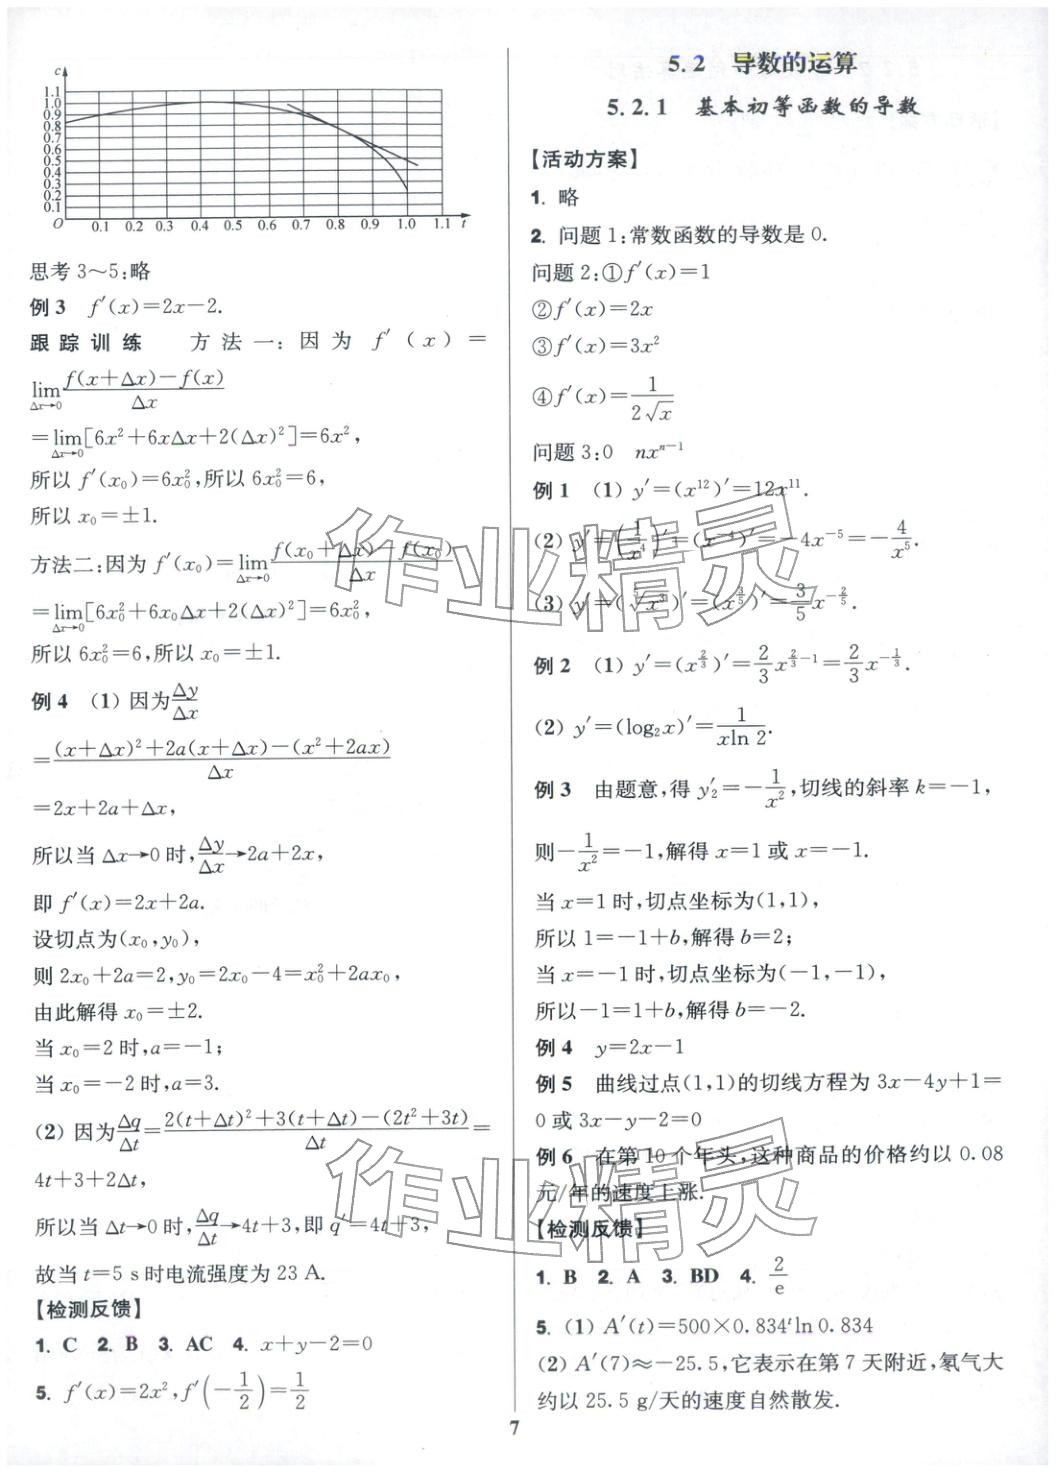 c
1.1
1.0
0.9
0.8
0.7
0.6
0.5
0.4
0.3
0.2
0.1
O 0.1 0.2 0.3 0.4 0.5 0.6 0.7 0.8 0.9 1.0 1.1 t
思考 3～5:略
例 3 f′(x)=2x-2.
跟踪训练 方法一:因为 f′(x)=
lim_{Δx→0} (f(x+Δx)-f(x))/Δx
=lim_{Δx→0}[6x²+6xΔx+2(Δx)²]=6x²,
所以 f′(x₀)=6x₀²,所以 6x₀²=6,
所以 x₀=±1.
方法二:因为 f′(x₀)=lim_{Δx→0} (f(x₀+Δx)-f(x₀))/Δx
=lim_{Δx→0}[6x₀²+6x₀Δx+2(Δx)²]=6x₀²,
所以 6x₀²=6,所以 x₀=±1.
例 4 (1) 因为 Δy/Δx
=((x+Δx)²+2a(x+Δx)-(x²+2ax))/Δx
=2x+2a+Δx,
所以当 Δx→0 时, Δy/Δx→2a+2x,
即 f′(x)=2x+2a.
设切点为(x₀,y₀),
则 2x₀+2a=2,y₀=2x₀-4=x₀²+2ax₀,
由此解得 x₀=±2.
当 x₀=2 时,a=-1;
当 x₀=-2 时,a=3.
(2) 因为 Δq/Δt=(2(t+Δt)²+3(t+Δt)-(2t²+3t))/Δt=
4t+3+2Δt,
所以当 Δt→0 时, Δq/Δt→4t+3,即 q′=4t+3,
故当 t=5 s 时电流强度为 23 A.
【检测反馈】
1. C 2. B 3. AC 4. x+y-2=0
5. f′(x)=2x²,f′(-1/2)=1/2
5.2 导数的运算
5.2.1 基本初等函数的导数
【活动方案】
1. 略
2. 问题 1:常数函数的导数是 0.
问题 2:①f′(x)=1
②f′(x)=2x
③f′(x)=3x²
④f′(x)=1/(2√x)
问题 3:0 nxⁿ⁻¹
例 1 (1) y′=(x¹²)′=12x¹¹.
(2) y′=(1/x⁴)′=(x⁻⁴)′=-4x⁻⁵=-4/x⁵.
(3) y′=(⁵√x³)′=(x^{3/5})′=3/5 x^{-2/5}.
例 2 (1) y′=(x^{2/3})′=2/3 x^{2/3-1}=2/3 x^{-1/3}.
(2) y′=(log₂x)′=1/(xln 2).
例 3 由题意,得 y₂′=-1/x²,切线的斜率 k=-1,
则-1/x²=-1,解得 x=1 或 x=-1.
当 x=1 时,切点坐标为(1,1),
所以 1=-1+b,解得 b=2;
当 x=-1 时,切点坐标为(-1,-1),
所以-1=1+b,解得 b=-2.
例 4 y=2x-1
例 5 曲线过点(1,1)的切线方程为 3x-4y+1=
0 或 3x-y-2=0
例 6 在第 10 个年头,这种商品的价格约以 0.08
元/年的速度上涨.
【检测反馈】
1. B 2. A 3. BD 4. 2/e
5. (1) A′(t)=500×0.834ᵗln 0.834
(2) A′(7)≈-25.5,它表示在第 7 天附近,氡气大
约以 25.5 g/天的速度自然散发.
7
作业精灵
作业精灵